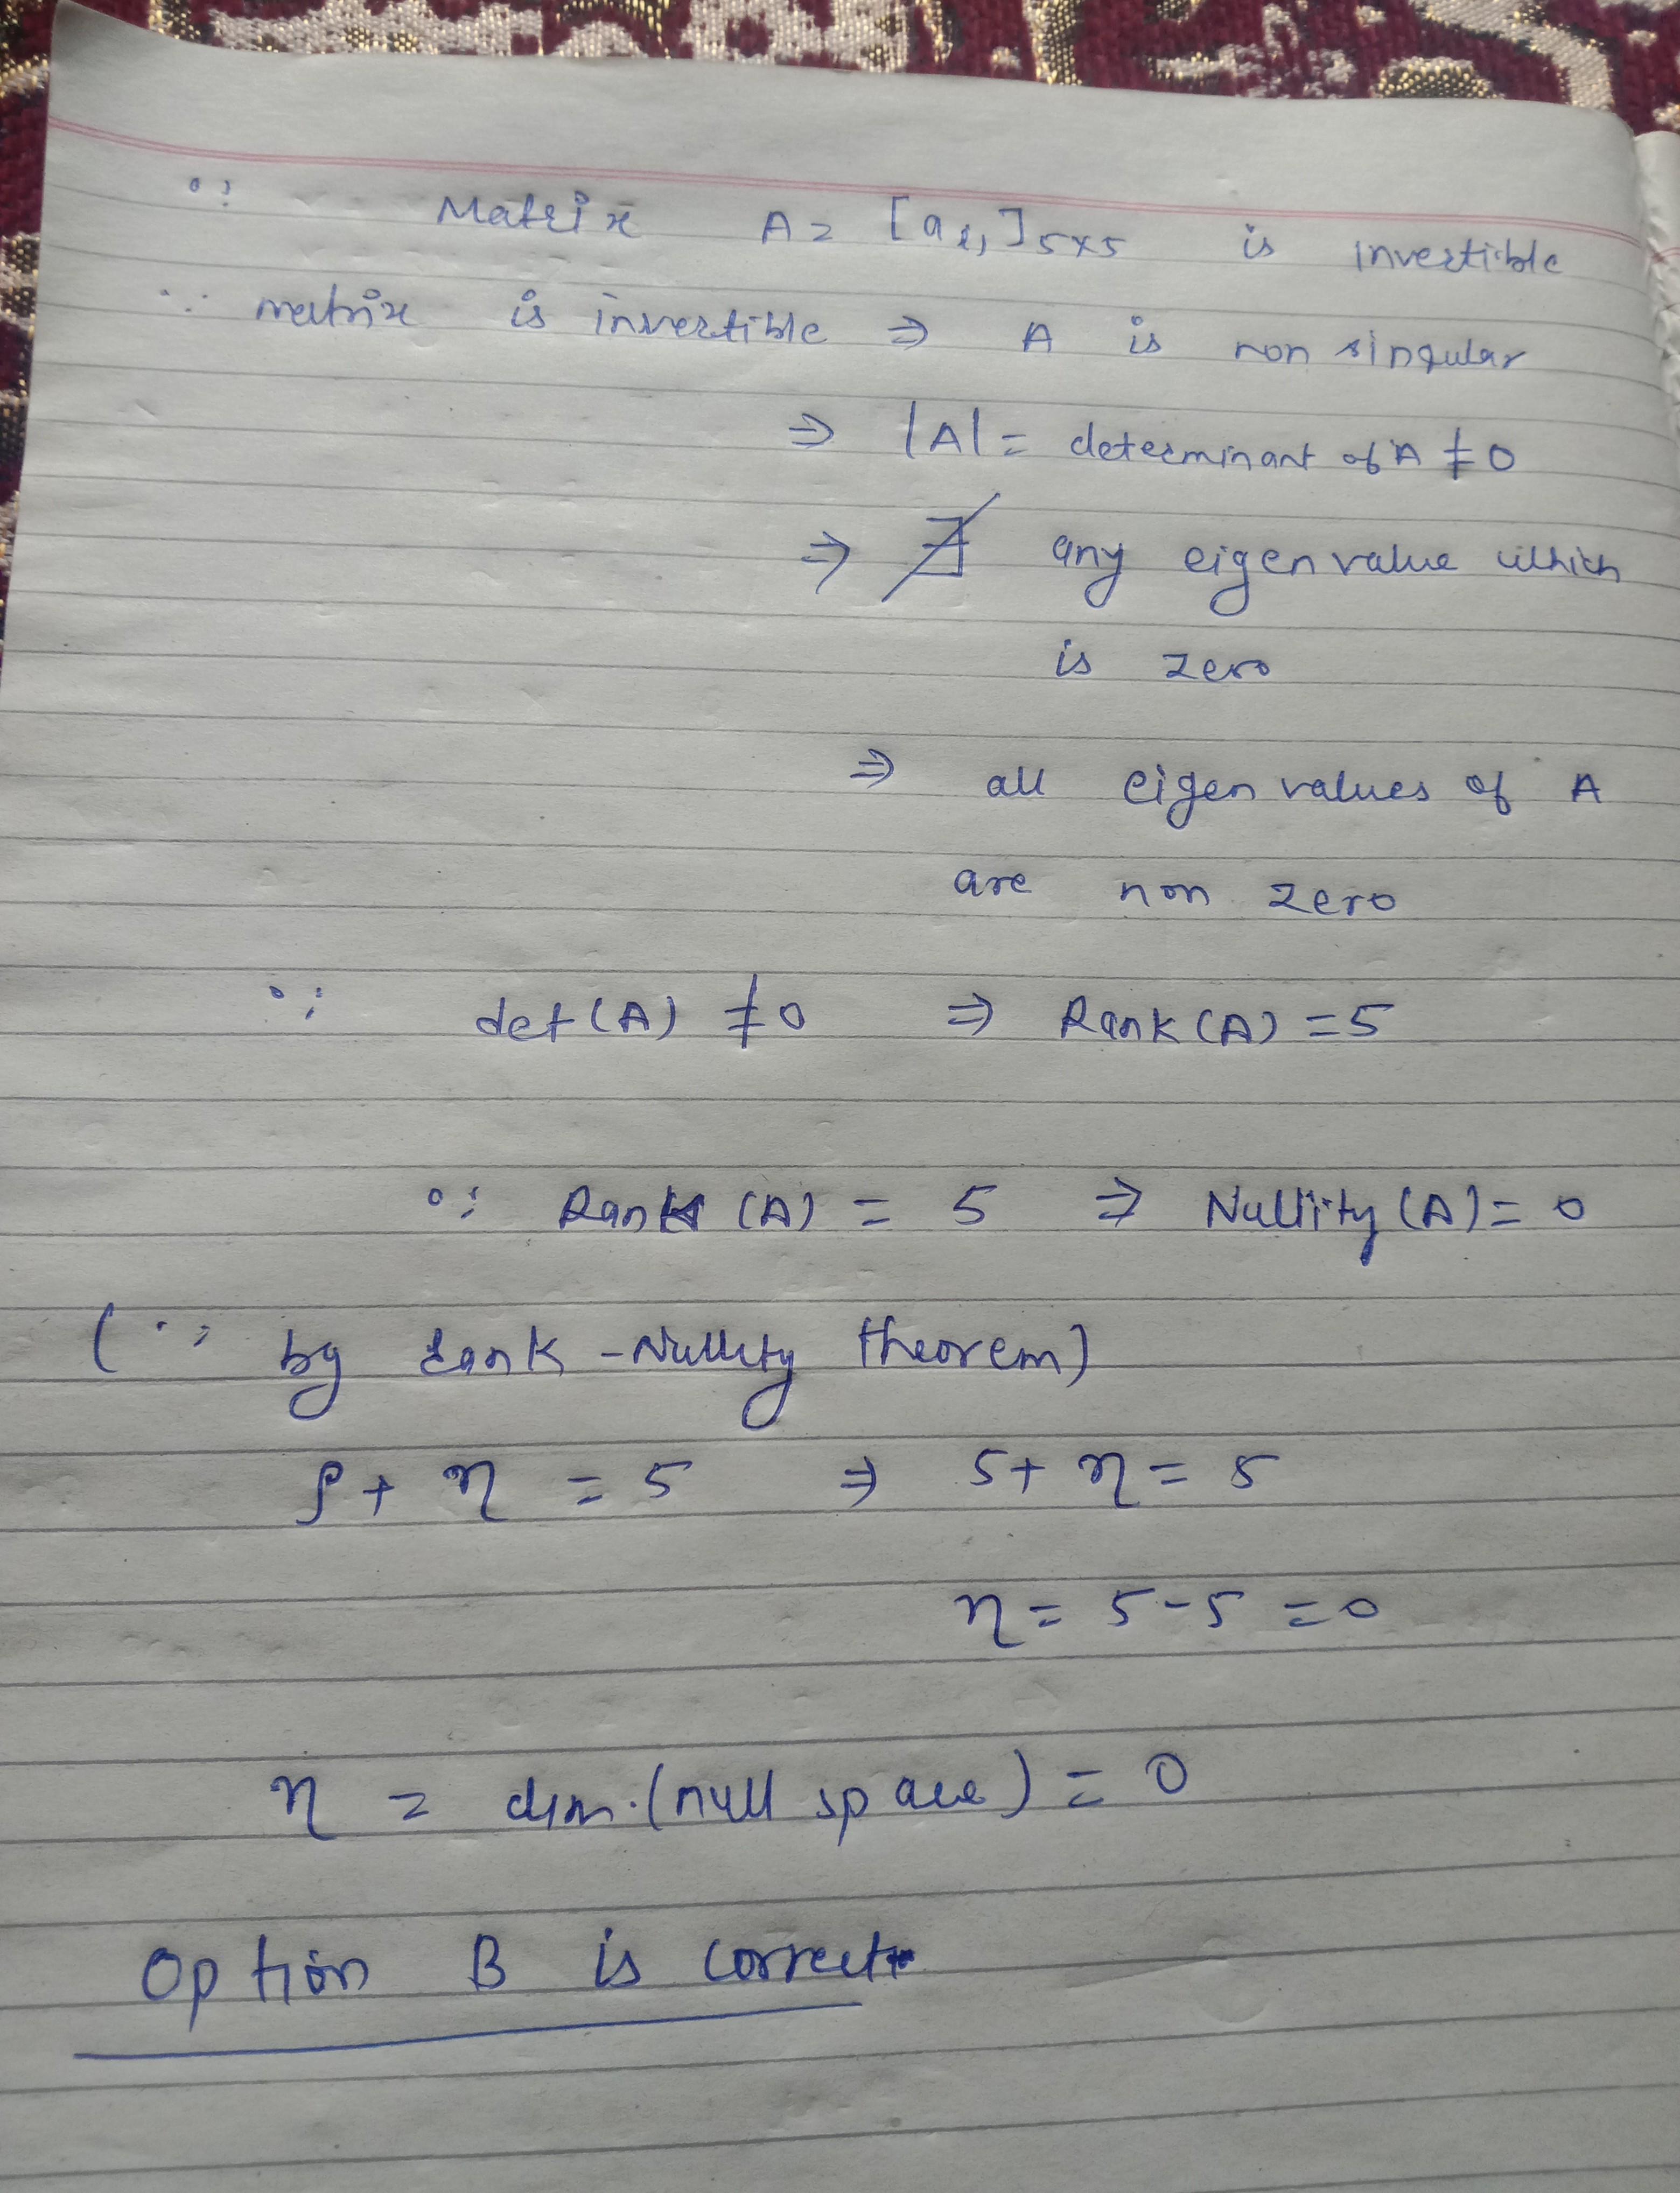 ∵ Matrix A = [aij]5×5 is invertible
∵ matrix is invertible ⇒ A is non singular
⇒ |A| = determinant of A ≠ 0
⇒ ∄ any eigen value which
is zero
⇒ all eigen values of A
are non zero
∵ det(A) ≠ 0 ⇒ Rank(A) = 5
∵ Rank (A) = 5 ⇒ Nullity (A) = 0
(∵ by rank - Nullity theorem)
ρ + η = 5 ⇒ 5 + η = 5
η = 5 - 5 = 0
η = dim. (null space) = 0
Option B is correct